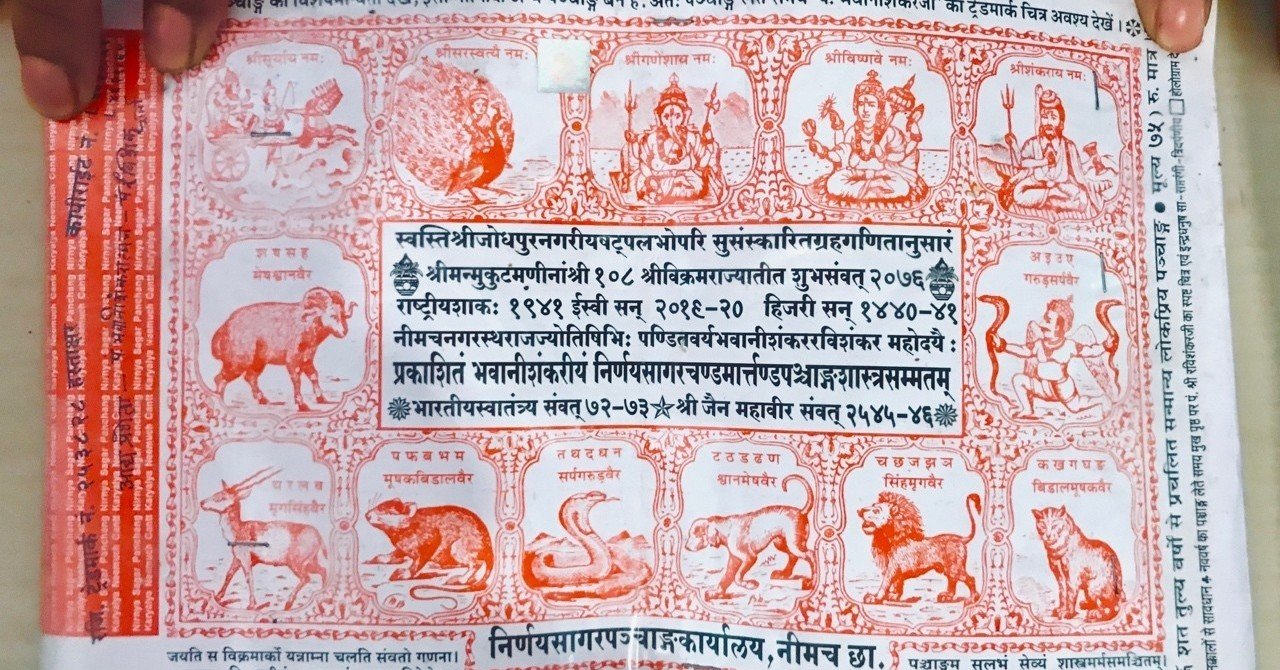 की विशेषमान्यता देख, इसी
का ट्रेडमार्क चित्र अवश्य देखें।
श्रीसूर्याय नमः
श्रीसरस्वत्यै नमः
श्रीगणेशाय नमः
श्रीविष्णवे नमः
श्रीशंकराय नमः
श ष स ह
मेषश्वानवैर
अ इ उ ए
गरुडसर्पवैर
स्वस्तिश्रीजोधपुरनगरीयषट्पलभोपरि सुसंस्कारितग्रहगणितानुसारं
श्रीमन्मुकुटमणीनांश्री १०८ श्रीविक्रमराज्यातीत शुभसंवत् २०७६
राष्ट्रीयशाकः १९४१ ईस्वी सन् २०१९-२० हिजरी सन् १४४०-४१
नीमचनगरस्थराजज्योतिषिभिः पण्डितवर्यभवानीशंकररविशंकर महोदयैः
प्रकाशितं भवानीशंकरीयं निर्णयसागरचण्डमार्त्तण्डपञ्चाङ्गशास्त्रसम्मतम्
भारतीयस्वातंत्र्य संवत् ७२-७३ श्री जैन महावीर संवत् २५४५-४६
य र ल व
मृगसिंहवैर
प फ ब भ म
मूषकबिडालवैर
त थ द ध न
सर्पगरुड़वैर
ट ठ ड ढ ण
श्वानमेषवैर
च छ ज झ ञ
सिंहमृगवैर
क ख ग घ ङ
बिडालमूषकवैर
निर्णयसागरपञ्चाङ्गकार्यालय, नीमच छा.
जयति स विक्रमार्को यन्नाम्ना चलति संवतो गणना।
पञ्चाङ्गम सुलभं सेव्य शास्त्रमर्मसमर्चितम्।
रजि. ट्रेडमार्क नं. २५३८२८ हस्ताक्षर कापीराईट नं.
Nirnya Sagar Panchang Karyalya Neemuch Cantt
शत तुल्य वर्षों से प्रचलित सन्मान्य लोकप्रिय पञ्चाङ्ग ● मूल्य ७५) रु. मात्र